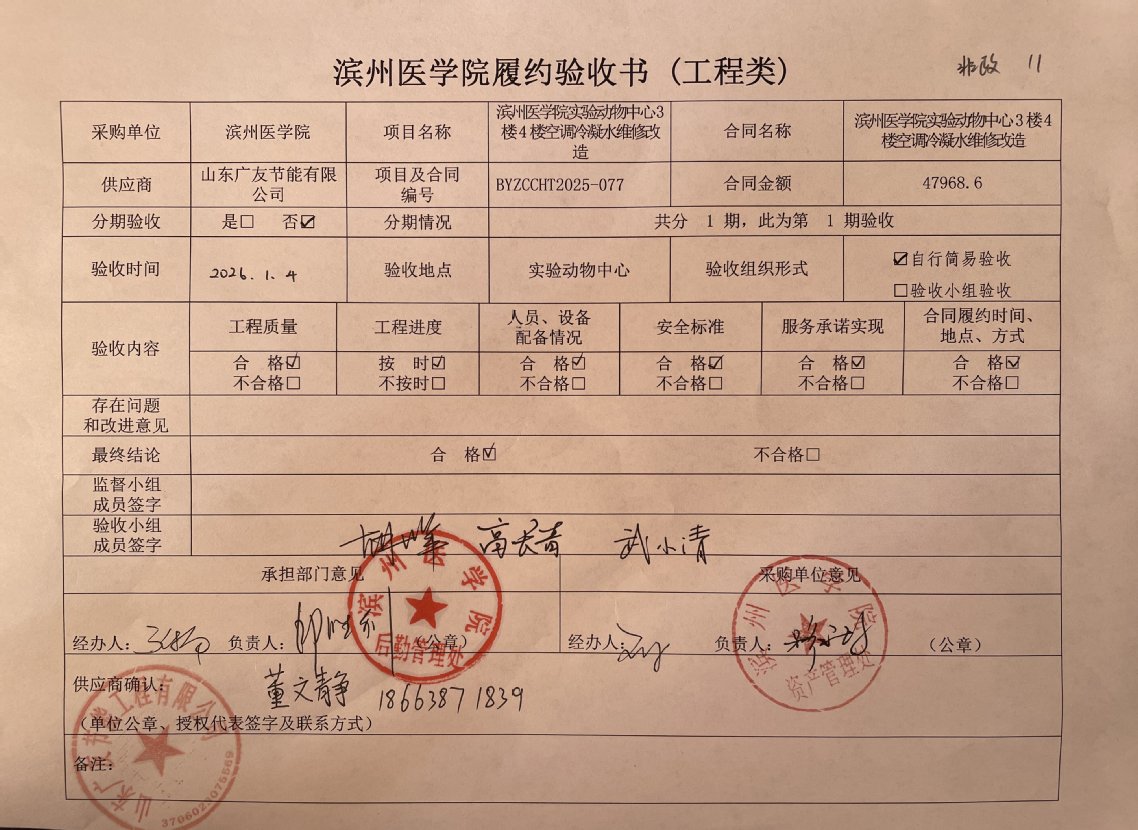 滨州医学院履约验收书（工程类）
非政 11
采购单位 滨州医学院 项目名称 滨州医学院实验动物中心3楼4楼空调冷凝水维修改造 合同名称 滨州医学院实验动物中心3楼4楼空调冷凝水维修改造
供应商 山东广友节能有限公司 项目及合同编号 BYZCCHT2025-077 合同金额 47968.6
分期验收 是□ 否☑ 分期情况 共分 1 期，此为第 1 期验收
验收时间 2026.1.4 验收地点 实验动物中心 验收组织形式 ☑自行简易验收
□验收小组验收
验收内容 工程质量 工程进度 人员、设备配备情况 安全标准 服务承诺实现 合同履约时间、地点、方式
合 格☑ 按 时☑ 合 格☑ 合 格☑ 合 格☑ 合 格☑
不合格□ 不按时□ 不合格□ 不合格□ 不合格□ 不合格□
存在问题
和改进意见
最终结论 合 格☑ 不合格□
监督小组
成员签字
验收小组
成员签字 高长青 武小清
承担部门意见 采购单位意见
经办人： 负责人： （公章） 经办人： 负责人： （公章）
滨州医学院
后勤管理处
滨州医学院
资产管理处
供应商确认： 董文静 18663871839
（单位公章、授权代表签字及联系方式）
备注：
3706023075569